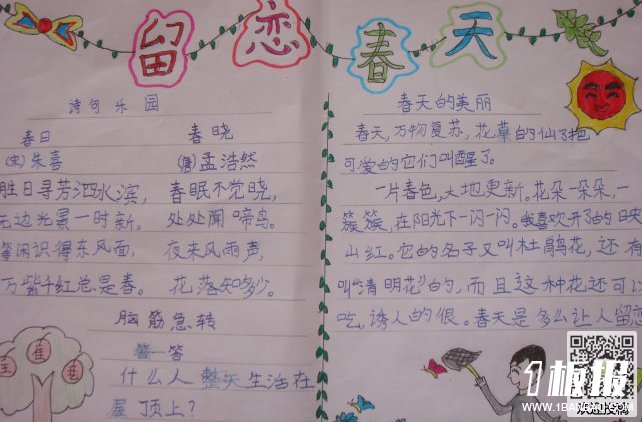 留恋春天
诗句乐园
春日
(宋)朱喜
胜日寻芳泗水滨,
无边光景一时新。
等闲识得东风面,
万紫千红总是春。
春晓
(唐)孟浩然
春眠不觉晓,
处处闻啼鸟。
夜来风雨声,
花落知多少。
脑筋急转
答
什么人整天生活在
屋顶上?
春天的美丽
春天,万物复苏,花草的仙子把
可爱的它们叫醒了。
一片春色,大地更新。花朵一朵朵,一
簇簇,在阳光下一闪一闪。我喜欢开了的映
山红。它的名子又叫杜鹃花,还有
叫"清明花"的,而且这种花还可以
吃,诱人的很。春天是多么让人留恋
1板报
WWW.1BANBAO.COM
欢迎投稿